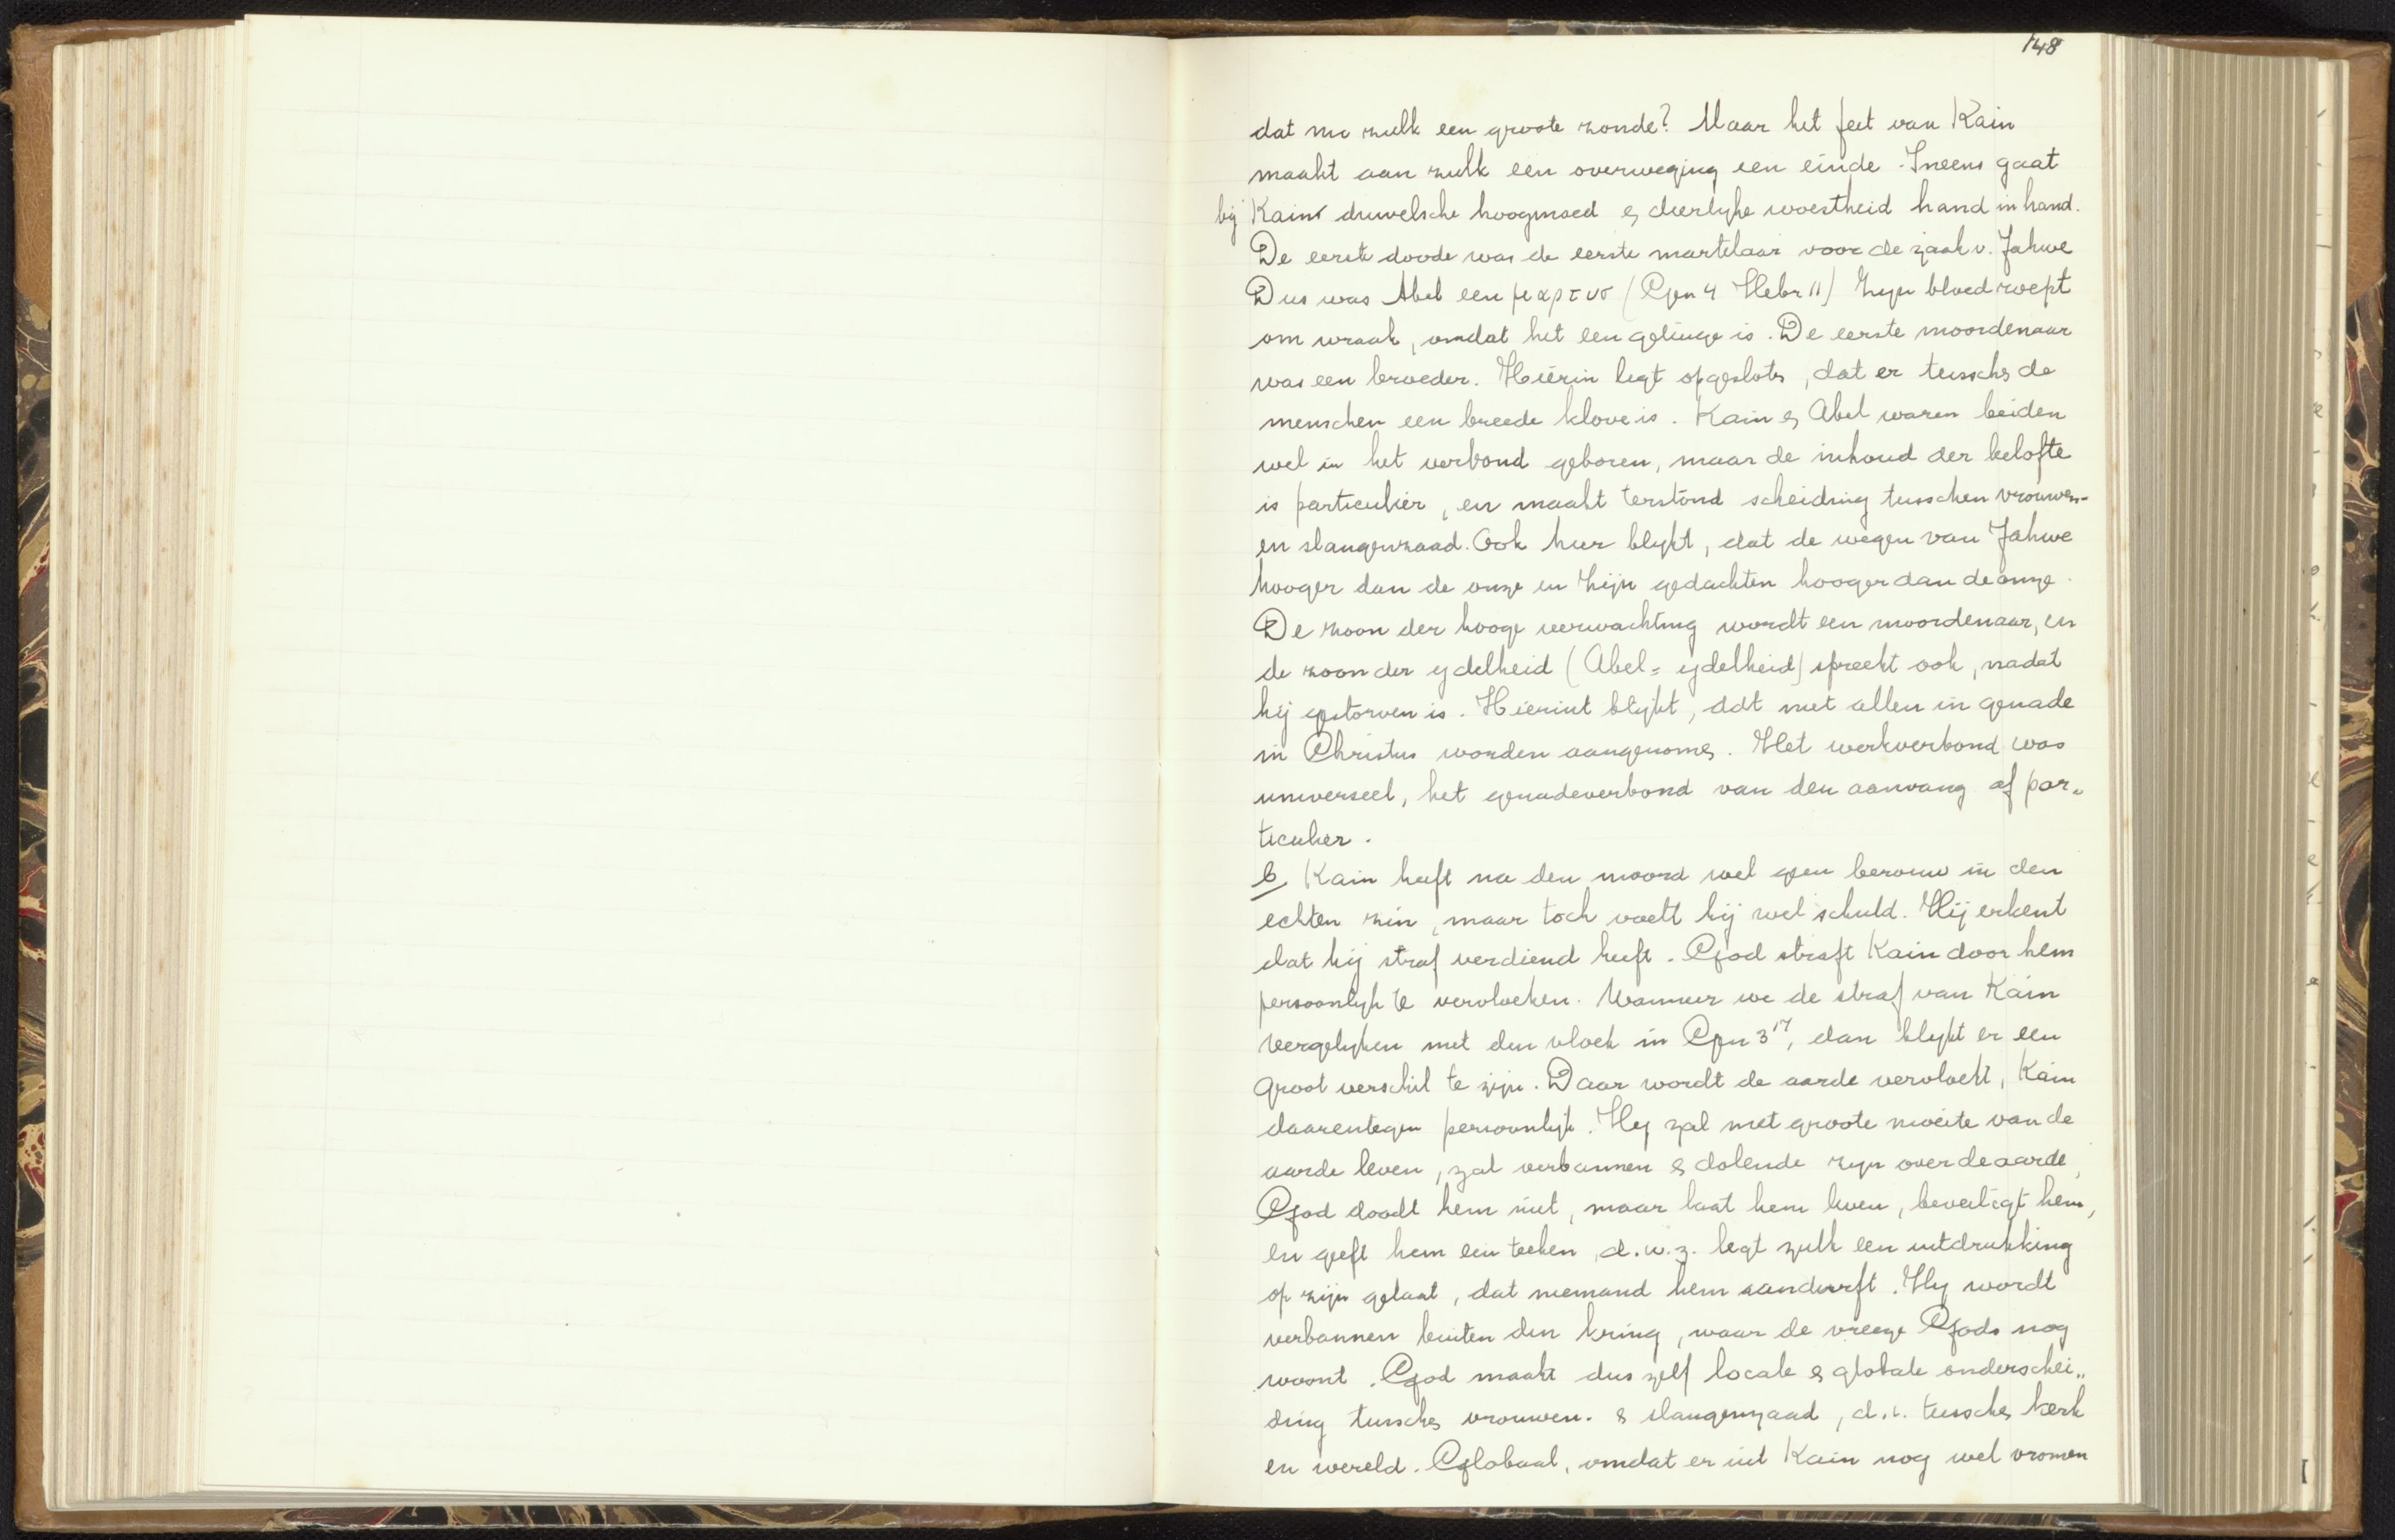 148
dat nu zulk een groote zonde? Maar het feit van Kain
maakt aan zulk een overweging een einde. Ineens gaat
bij Kain duivelsche hoogmoed & dierlijke woestheid hand in hand.
De eerste doode was de eerste martelaar voor de zaak v. Jahwe
Dus was Abel een μαρτυσ (Gen 4 Hebr 11) Zijn bloed roept
om wraak, omdat het een getuige is. De eerste moordenaar
was een broeder. Hierin ligt opgesloten, dat er tusschen de
menschen een breede klove is. Kain & Abel waren beiden
wel in het verbond geboren, maar de inhoud der belofte
is particulier, en maakt terstond scheiding tusschen vrouwen-
en slangenzaad. Ook hier blijkt, dat de wegen van Jahwe
hooger dan de onze en Zijn gedachten hooger dan de onze.
De zoon der hooge verwachting wordt een moordenaar, en
de zoon der ijdelheid (Abel = ijdelheid) spreekt ook, nadat
hij gestorven is. Hieruit blijkt, dat niet allen in genade
in Christus worden aangenomen. Het werkverbond was
universeel, het genadeverbond van den aanvang af par„
ticulier.
b, Kain heeft na den moord wel geen berouw in den
echten zin, maar toch voelt hij wel schuld. Hij erkent
dat hij straf verdiend heeft. God straft Kain door hem
persoonlijk te vervloeken. Wanneer we de straf van Kain
vergelijken met den vloek in Gen 3¹⁷, dan blijkt er een
groot verschil te zijn. Daar wordt de aarde vervloekt, Kain
daarentegen persoonlijk. Hij zal met groote moeite van de
aarde leven, zal verbannen & dolende zijn over de aarde,
God doodt hem niet, maar laat hem leven, beveiligt hem,
en geeft hem een teeken, d.w.z. legt zulk een uitdrukking
op zijn gelaat, dat niemand hem aandurft. Hij wordt
verbannen buiten den kring, waar de vreeze Gods nog
woont. God maakt dus zelf locale & globale onderschei„
ding tusschen vrouwen- & slangenzaad, d.i. tusschen kerk
en wereld. Globaal, omdat er uit Kain nog wel vromen